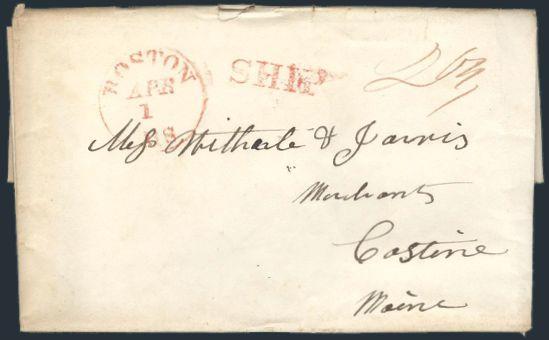 BOSTON
APR
1
SHIP
Mess Witherle & Jarvis
Merchants
Castine
Maine